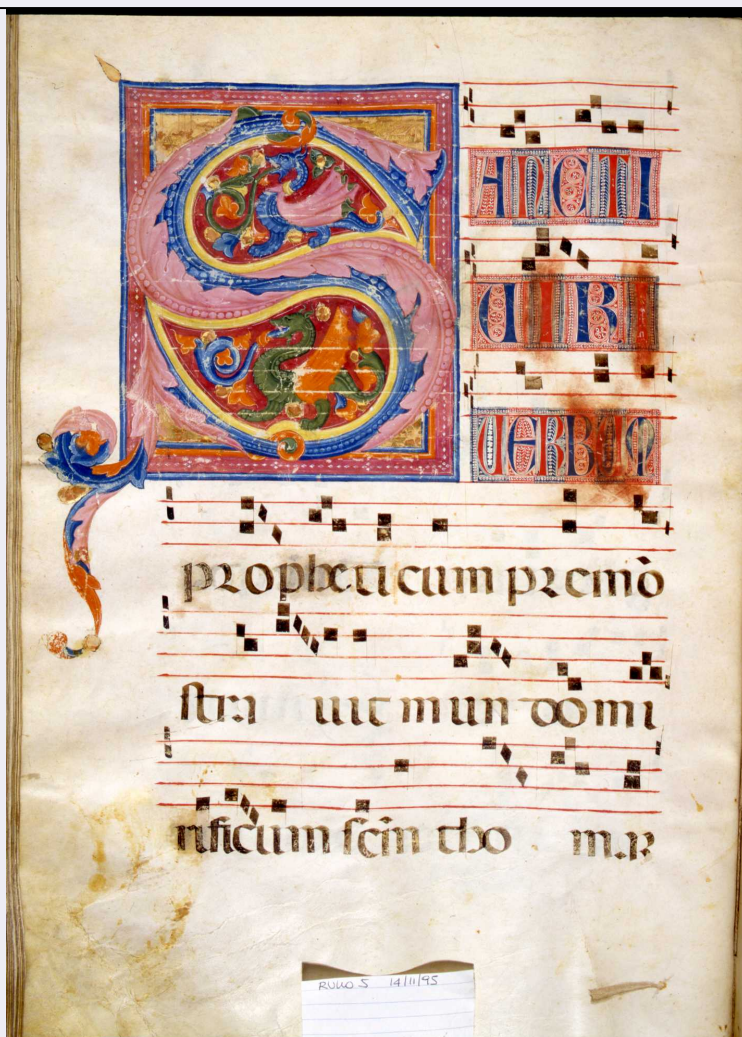 SANCTI
VIRI
VERBUM
propheticum premõ
stra uit mun do mi
rificum scĩm tho mar
RULLO 5 14/11/95